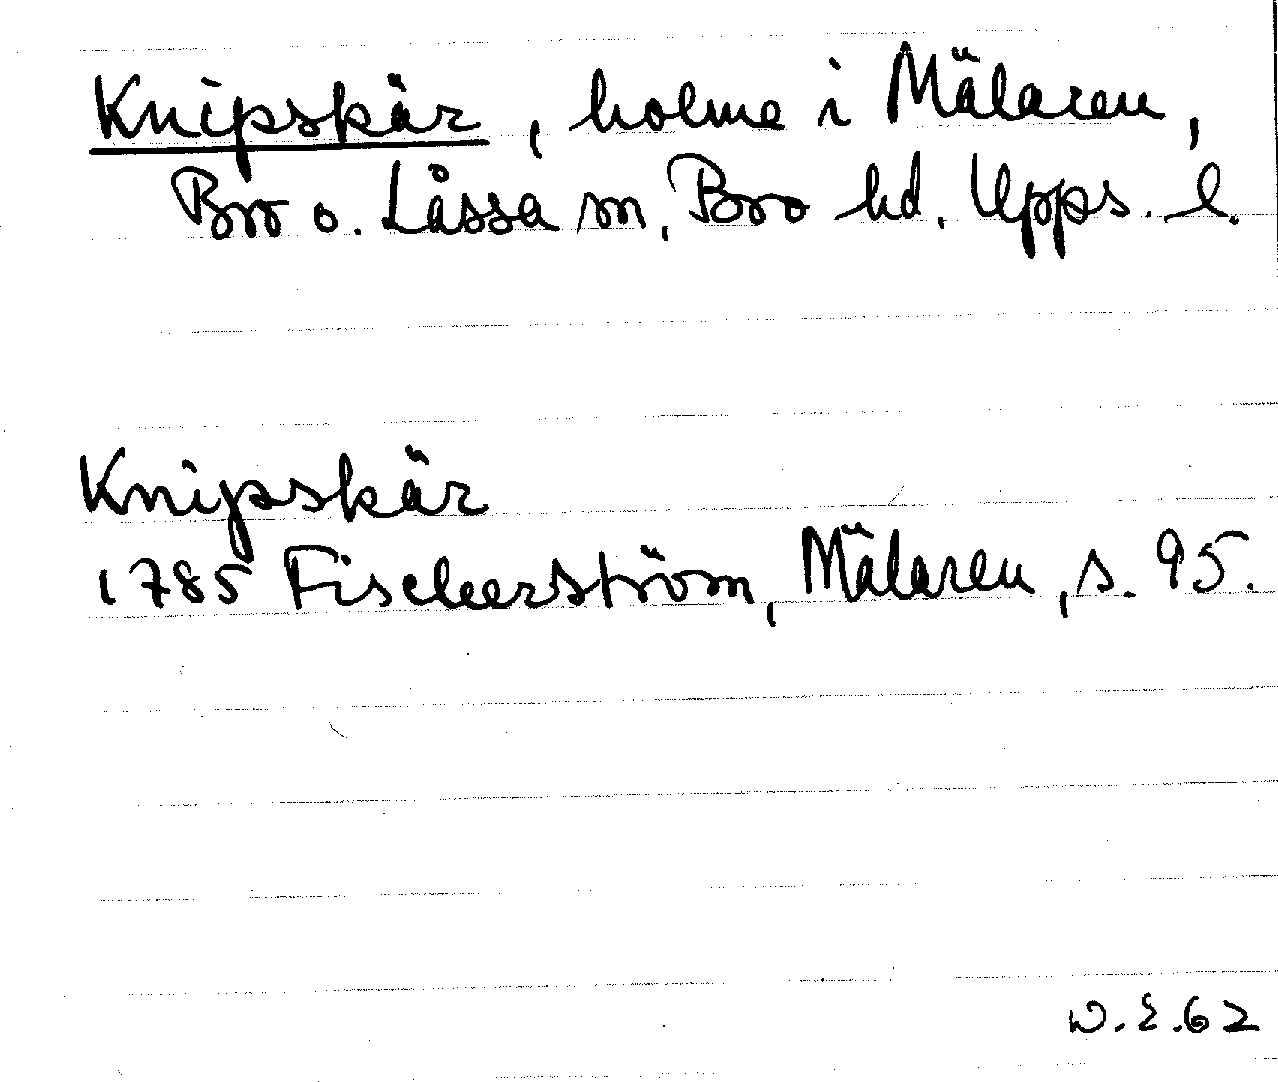 Knipskär, holme i Mälaren,
Bro o. Låssa sn, Bro hd. Upps. l.
Knipskär
1785 Fischerström, Mälaren, s. 95.
W.E.62